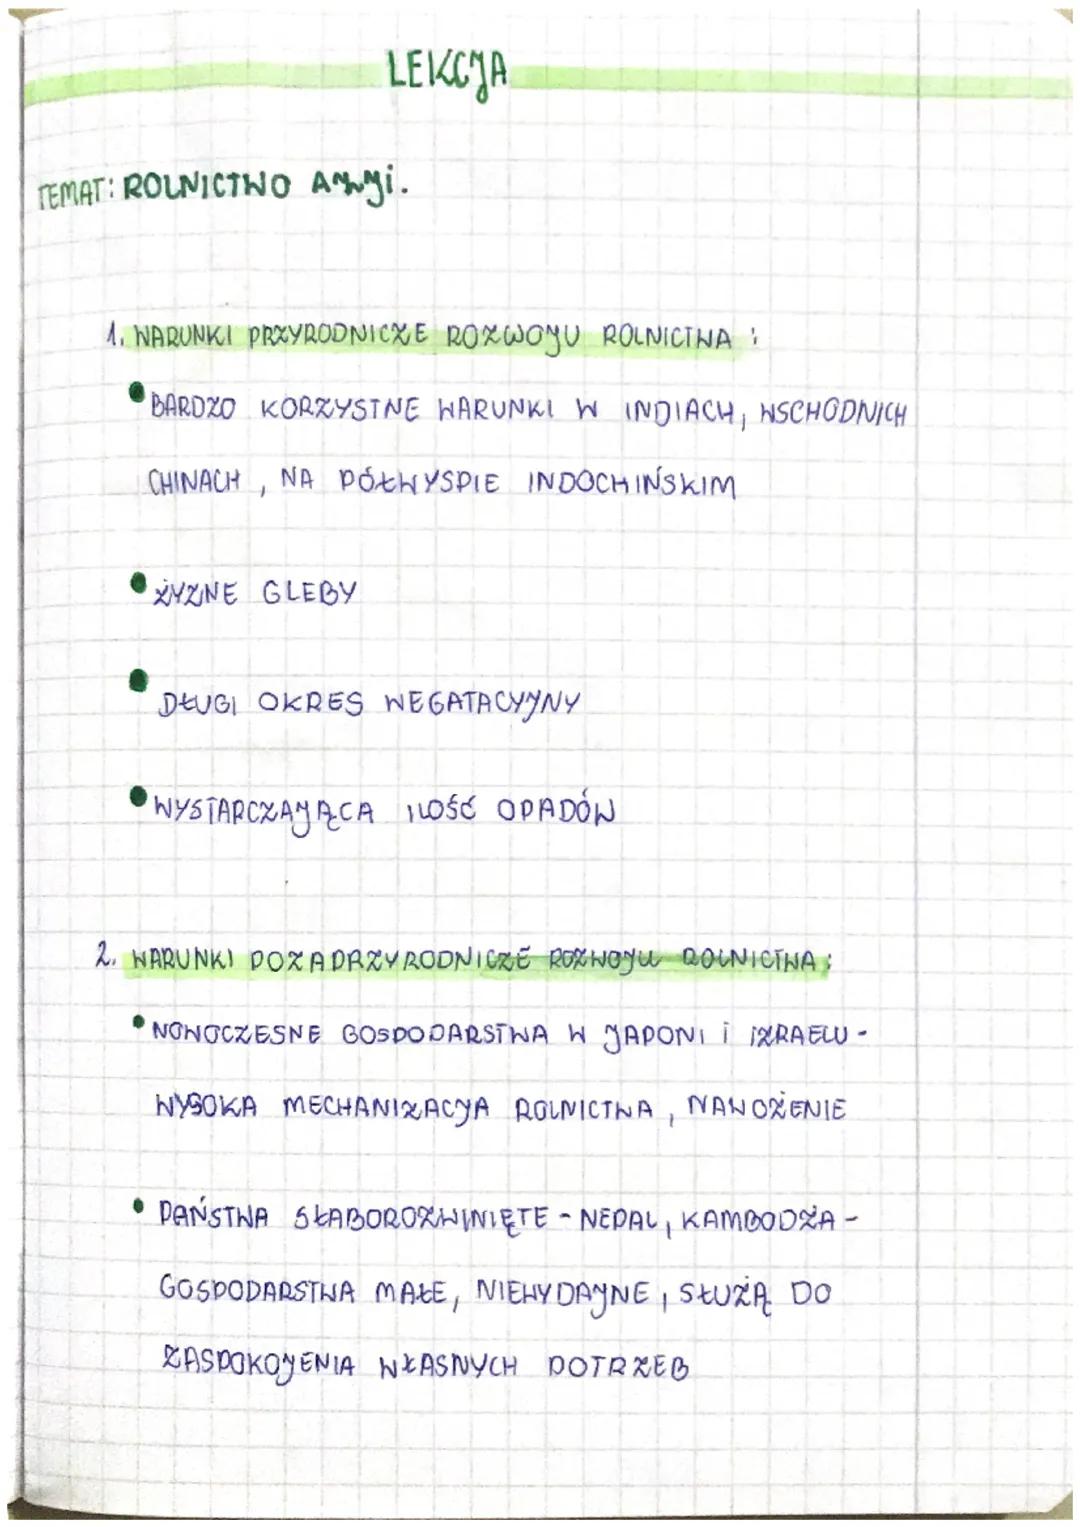 LEKCJA
TEMAT: ROLNICTWO Azji.
1. WARUNKI PRZYRODNICZE ROZWOJU ROLNICTWA :
BARDZO KORZYSTNE WARUNKI W INDIACH, WSCHODNICH
CHINACH, NA PÓŁWYSPIE INDOCHIŃSKIM
ŻYZNE GLEBY
DŁUGI OKRES WEGATACYJNY
WYSTARCZAJĄCA ILOŚĆ OPADÓW
2. WARUNKI POZAPRZYRODNICZE ROZWOJU ROLNICTWA :
NOWOCZESNE GOSPODARSTWA W JAPONI i IZRAELU -
WYSOKA MECHANIZACJA ROLNICTWA, NAWOŻENIE
PAŃSTWA SŁABOROZWINIĘTE - NEPAL, KAMBODŻA -
GOSPODARSTWA MAŁE, NIEWYDAJNE, SŁUŻĄ DO
ZASPOKOJENIA WŁASNYCH POTRZEB